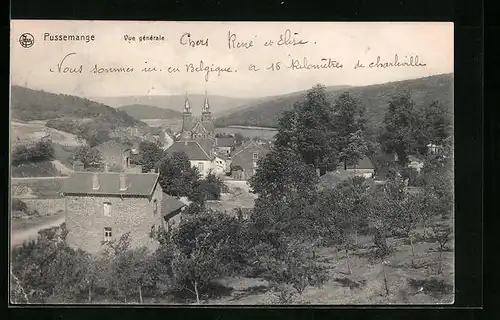 Pussemange Vue générale Chers René et Elise.
Nous sommes ici en Belgique a 16 kilomètres de charleville